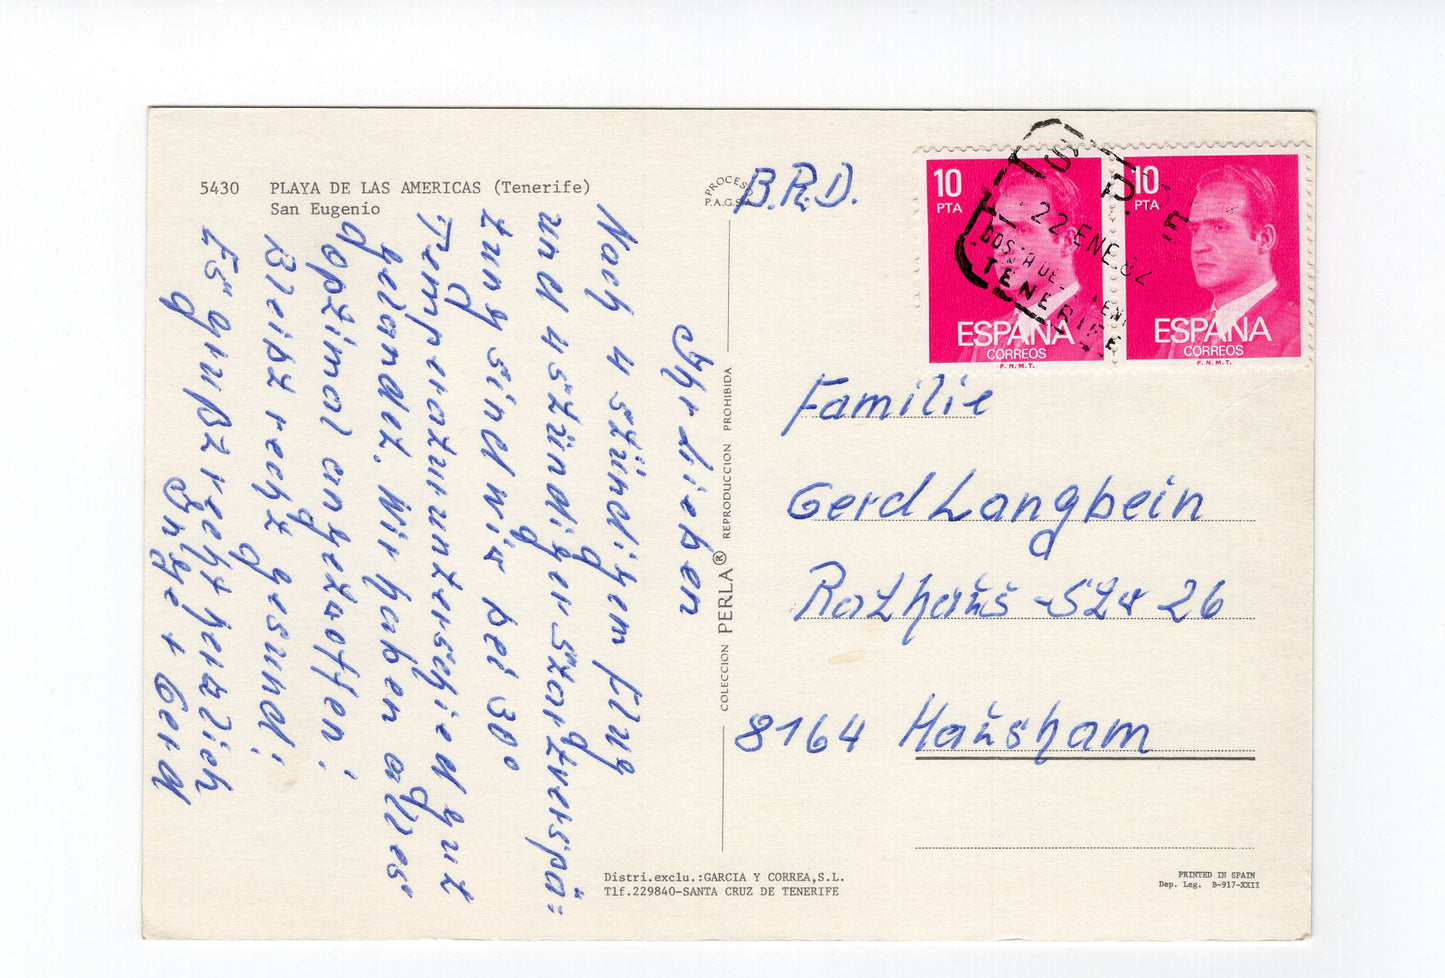 5430 PLAYA DE LAS AMERICAS (Tenerife)
San Eugenio
Ihr Lieben
Nach 4 stündigem Flug
und 4 stündiger Startverspä=
tung sind wir bei 30°
Temperaturunterschied gut
gelandet. Wir haben alles
optimal angetroffen!
Bleibt recht gesund!
Es grüßt recht herzlich
Inge + Gerd
PROCESO
P.A.G.S.A.
COLECCION PERLA® REPRODUCCION PROHIBIDA
B.R.D.
10
PTA
ESPAÑA
CORREOS
F.N.M.T.
10
PTA
ESPAÑA
CORREOS
F.N.M.T.
22 ENE. 82
TENERIFE
Familie
Gerd Langbein
Rathaus-Str 26
8164 Hausham
Distri.exclu.:GARCIA Y CORREA,S.L.
Tlf.229840-SANTA CRUZ DE TENERIFE
PRINTED IN SPAIN
Dep. Leg. B-917-XXII